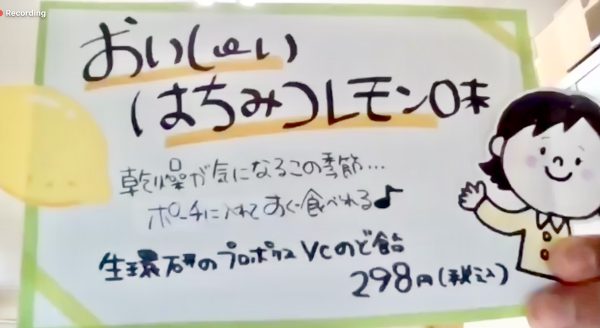 Recording
おいしい
はちみつレモン味
乾燥が気になるこの季節…
ポーチに入れてすぐ食べれる♪
生環研のプロポリスVCのど飴
298円(税込)